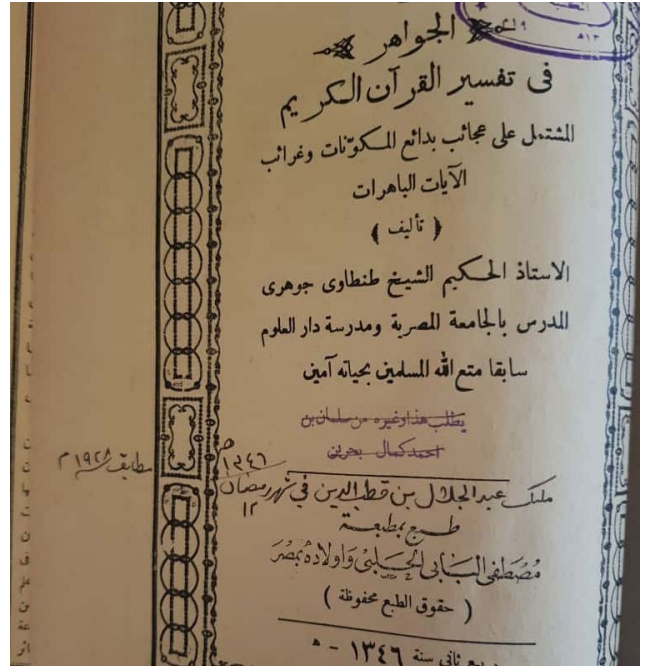 الجواهر
فى تفسير القرآن الكريم
المشتمل على عجائب بدائع المكوّنات وغرائب
الآيات الباهرات
﴿ تأليف ﴾
الاستاذ الحكيم الشيخ طنطاوى جوهرى
المدرس بالجامعة المصرية ومدرسة دار العلوم
سابقا متع الله المسلمين بحياته آمين
يطلب هذا وغيره من سلمان بن
احمد كمال بحرينى
١٣٤٦ مطابق ١٩٢٨ م
ملك عبد الجلال بن قطب الدين في شهر رمضان
١٢
طبع بمطبعة
مصطفى البابى الحلبى وأولاده بمصر
( حقوق الطبع محفوظة )
ثانى سنة ١٣٤٦ - ه